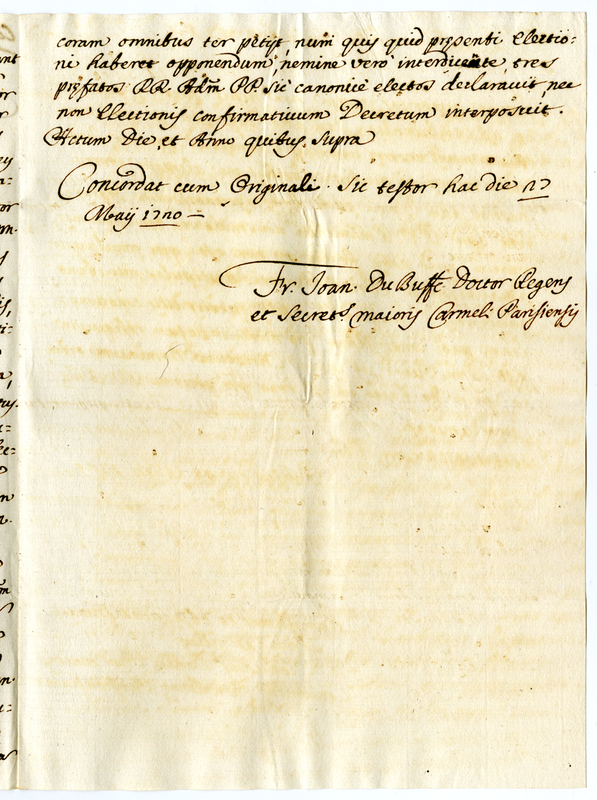 coram omnibus ter petijt, num quis quid pręsenti Electio:
ni haberet opponendum, nemine vero interdicente, tres
pręfatos RR. Adm̄ PP. sic canonicè electos declaravit, nec
non Electionis confirmativum Decretum interposuit.
Actum Die, et Anno quibus supra
Concordat cum Originali. Sic testor hac die 27
Maij 1720 —
Fr. Joan. DuBuffe Doctor Regens
et Secret.s maioris Carmeli Parisiensis